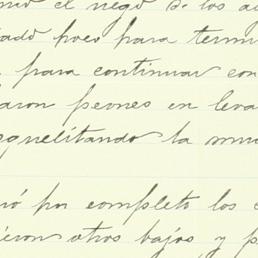 el nego de los
ado poco para term
para continuar con
aron peones en leva
equilitando la mu
ó por completo los
ieron otros bajos y p